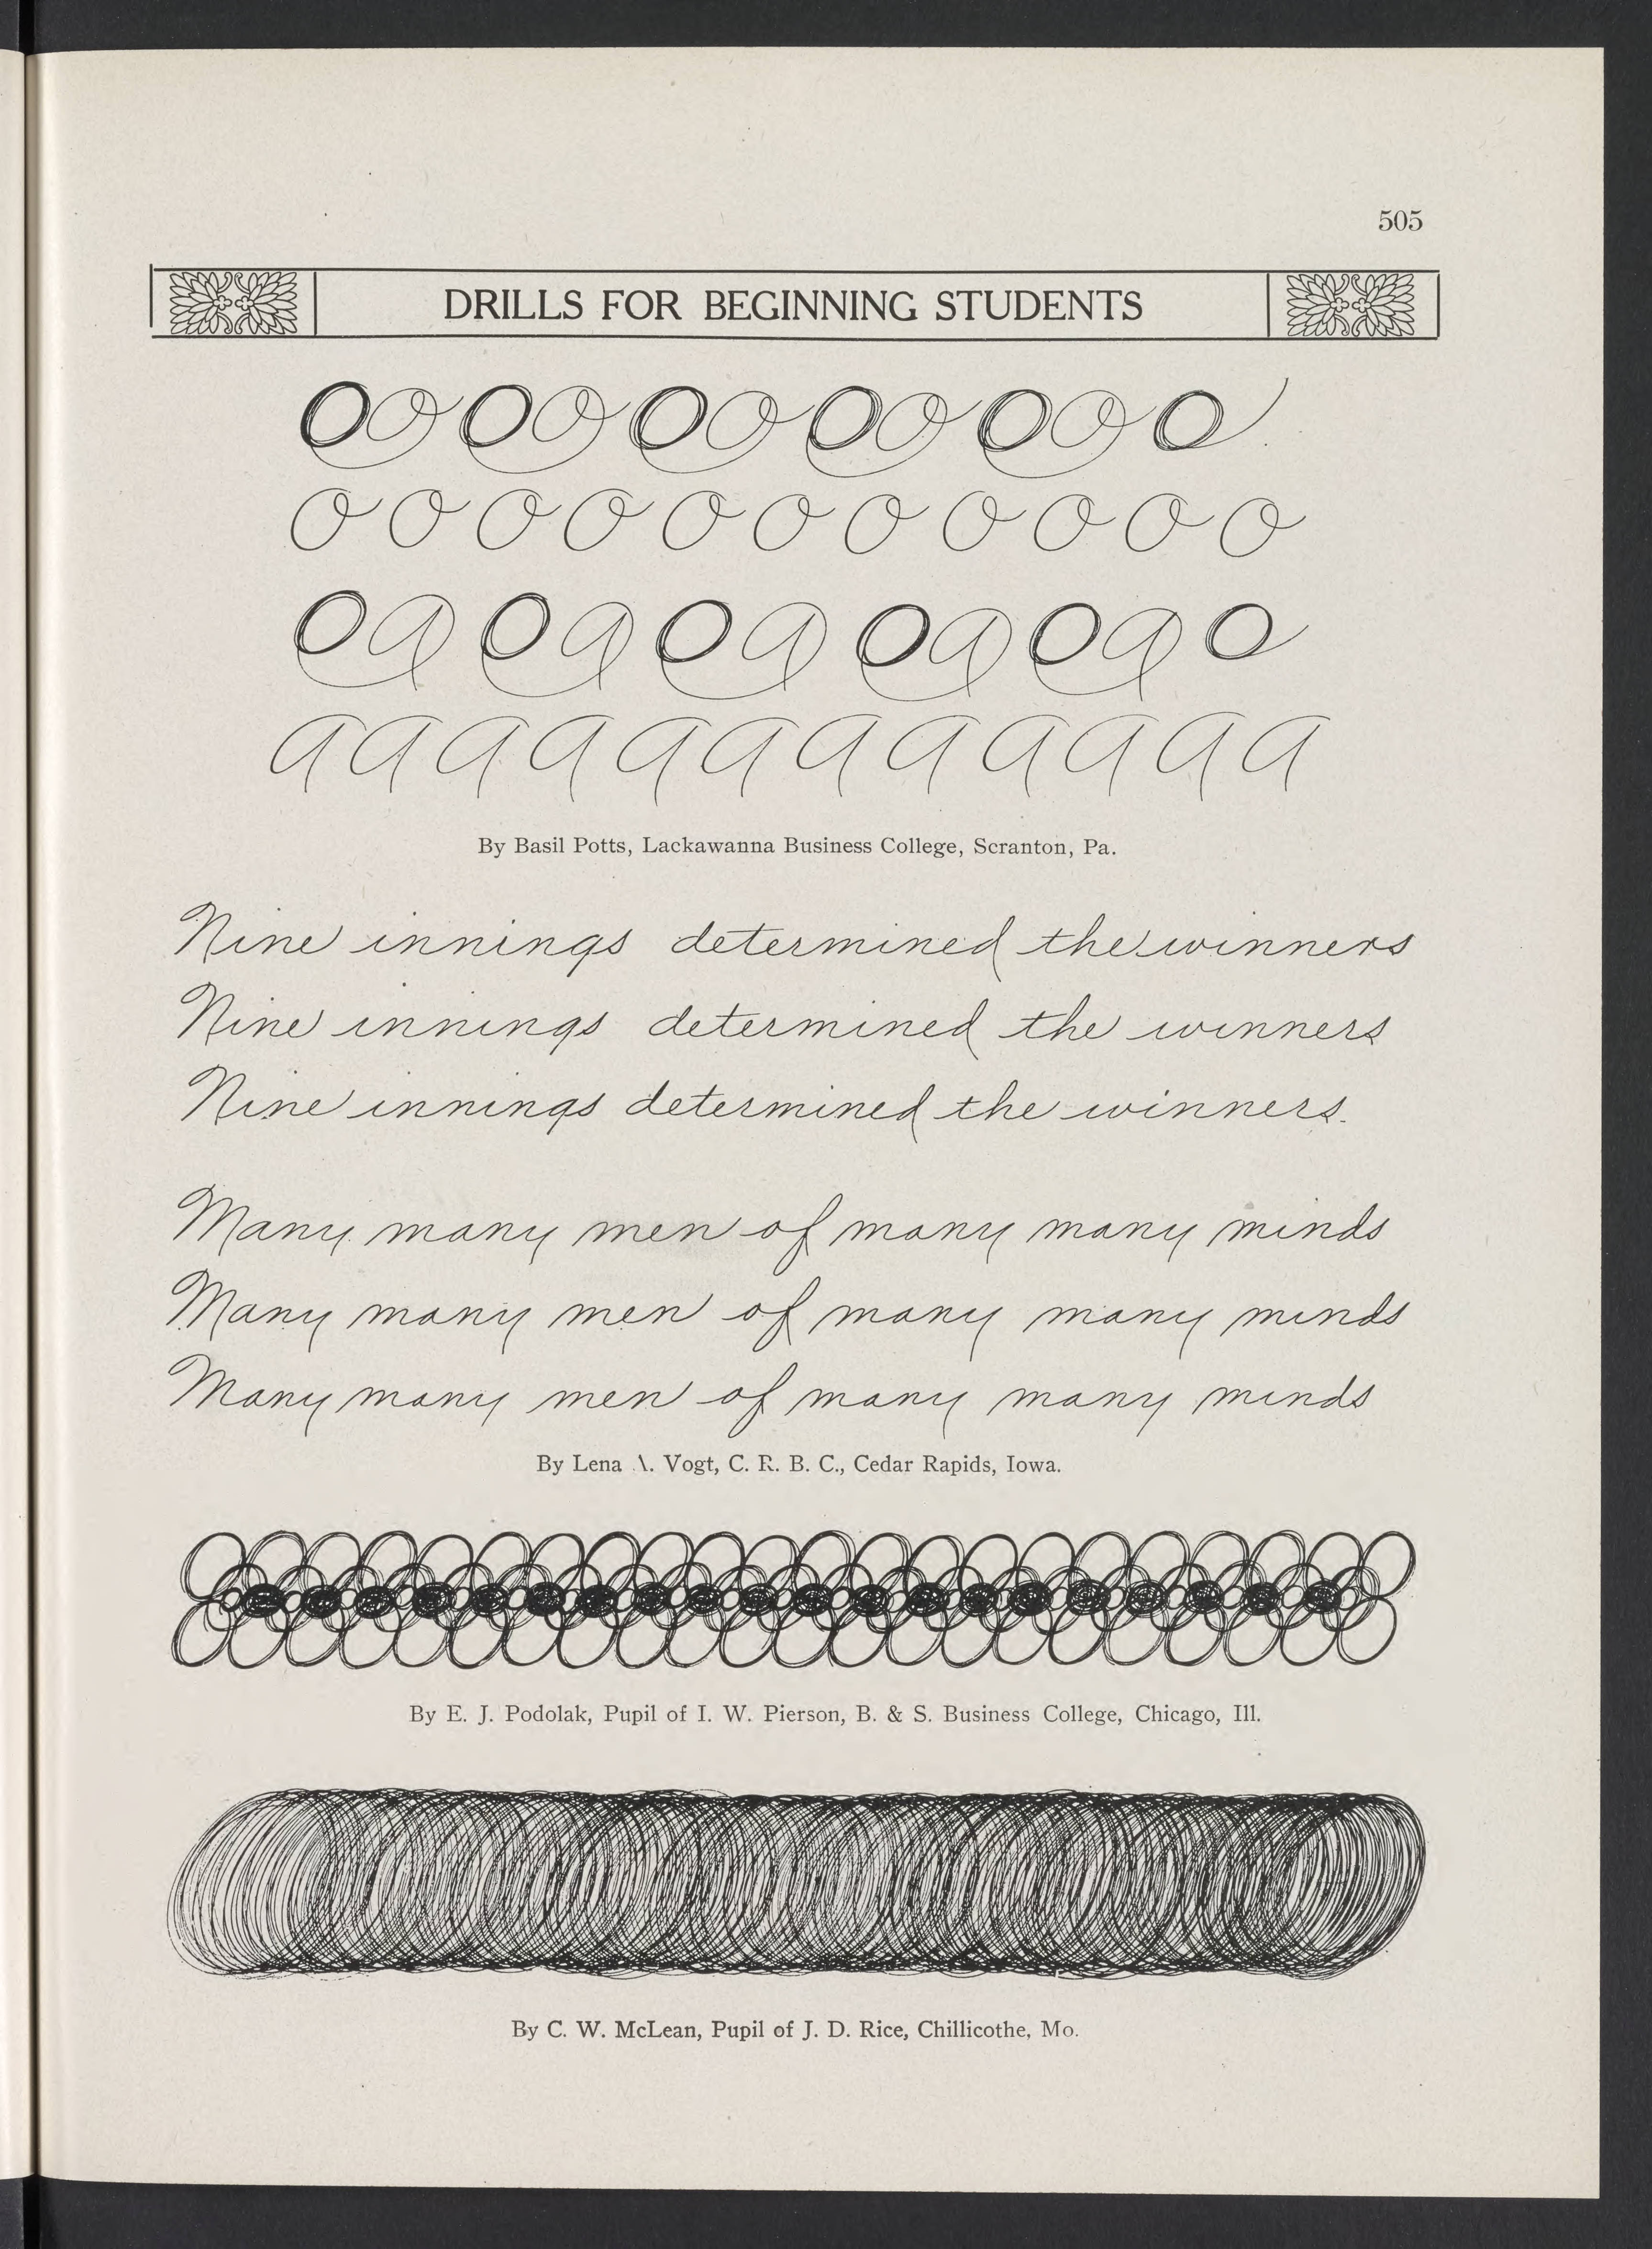 505
DRILLS FOR BEGINNING STUDENTS
O O O O O O O O O O O
O O O O O O O O O O O
O a O a O a O a O a O
a a a a a a a a a a a a
By Basil Potts, Lackawanna Business College, Scranton, Pa.
Nine innings determined the winners
Nine innings determined the winners
Nine innings determined the winners.
Many many men of many many minds
Many many men of many many minds
Many many men of many many minds
By Lena A. Vogt, C. R. B. C., Cedar Rapids, Iowa.
By E. J. Podolak, Pupil of I. W. Pierson, B. & S. Business College, Chicago, Ill.
By C. W. McLean, Pupil of J. D. Rice, Chillicothe, Mo.